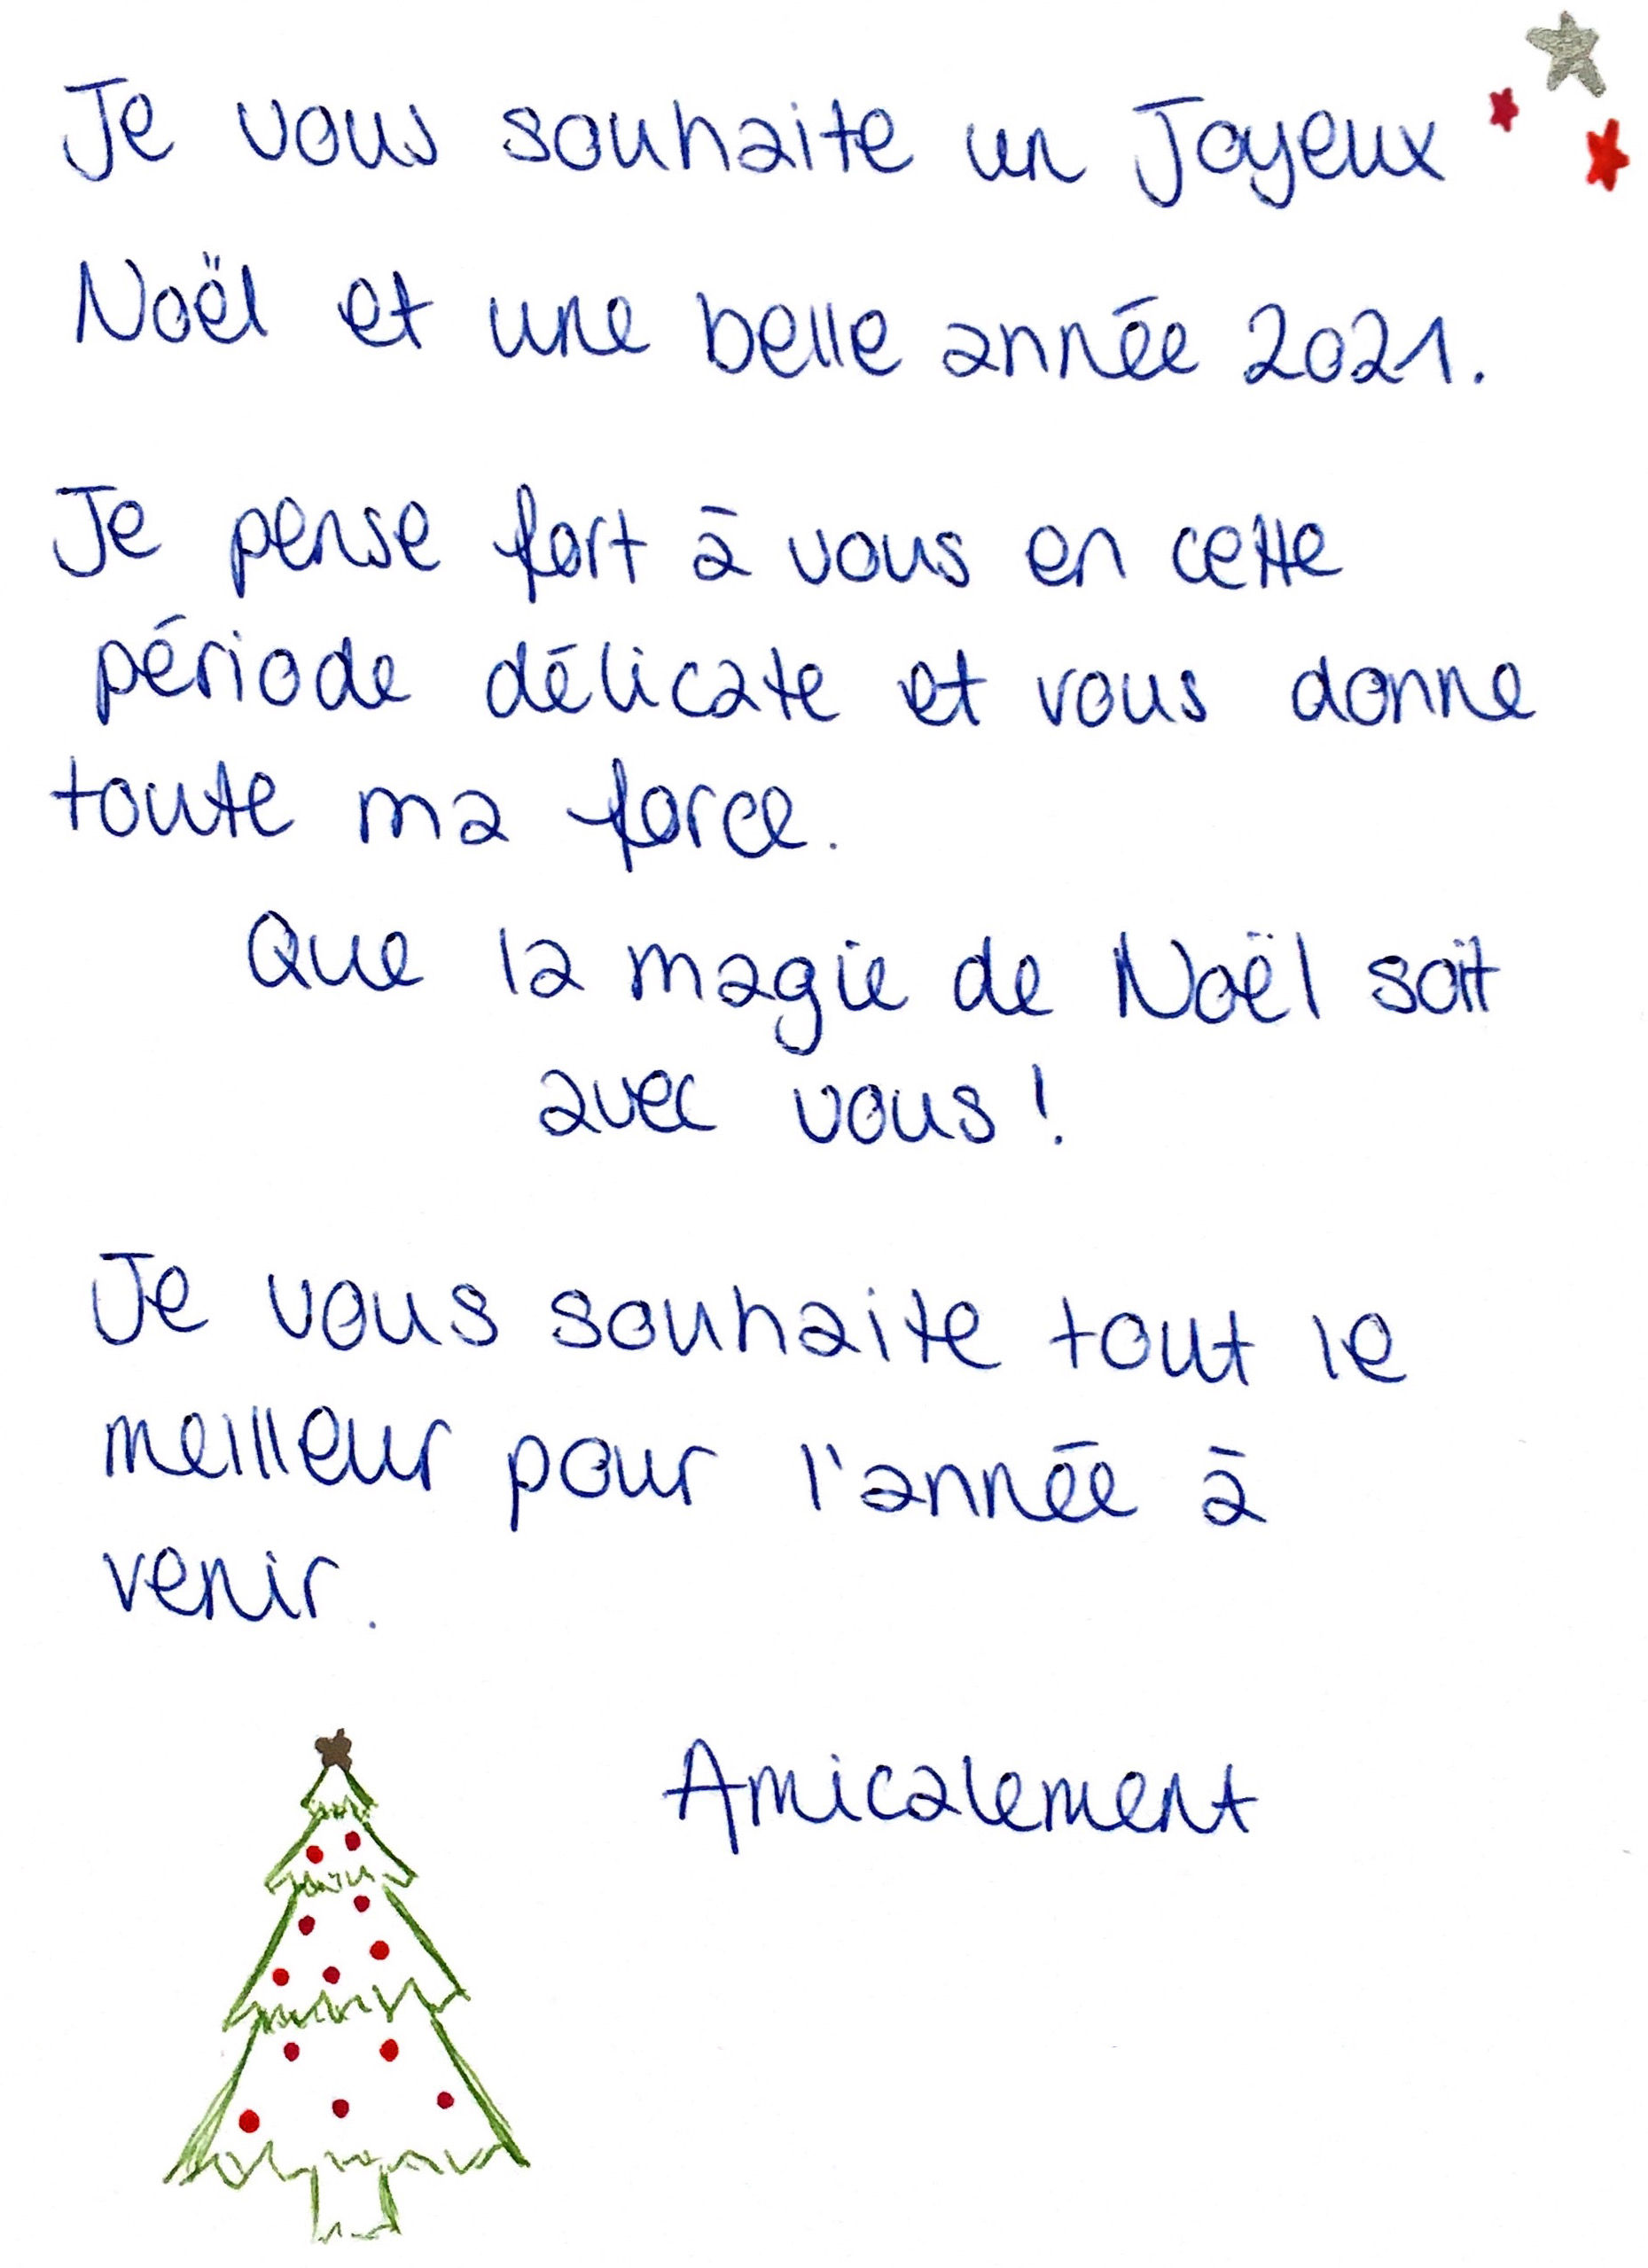 Je vous souhaite un Joyeux
Noël et une belle année 2021.
Je pense fort à vous en cette
période délicate et vous donne
toute ma force.
Que la magie de Noël soit
avec vous !
Je vous souhaite tout le
meilleur pour l'année à
venir.
Amicalement